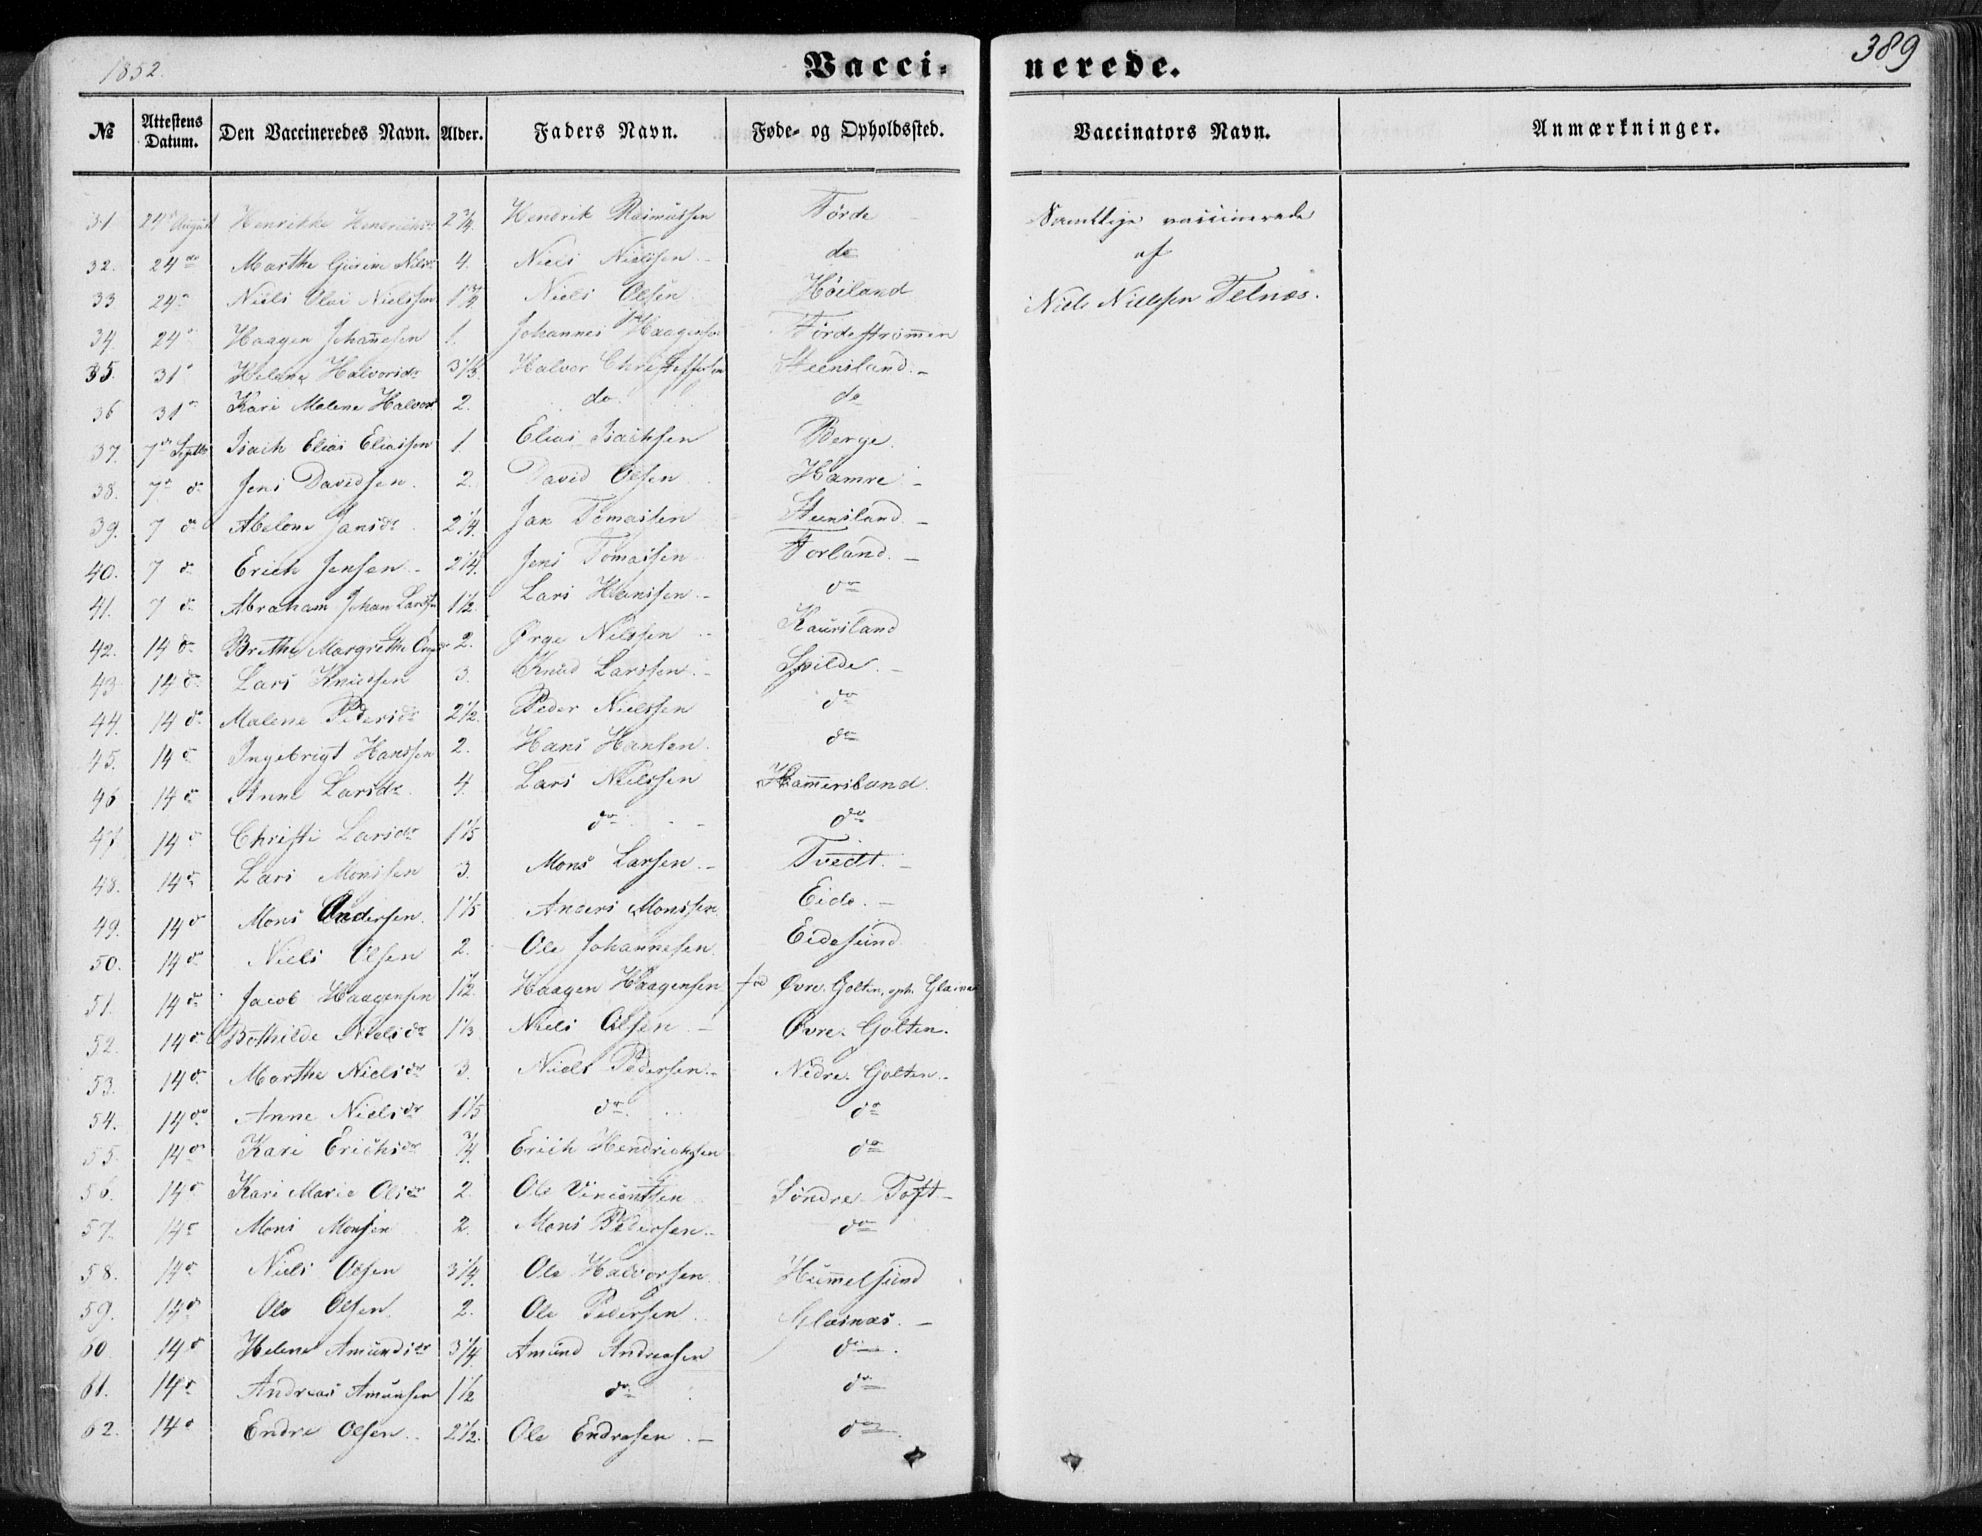 1852.
Vacci- nerede.
389
№ Attestens Datum. Den Vaccineredes Navn. Alder. Faders Navn. Føde- og Opholdssted. Vaccinators Navn. Anmærkninger.
31 24de August Henrikke Hendrichsdr 2 3/4 Hendrik Rasmussen Førde
32. 24 do Marthe Gurine Nilsdr 4. Niels Nielssen do
33 24 Niels Olai Nielssen 1 3/4 Niels Olsen Høiland
34. 24 Haagen Johan̄esen 1. Johannes Haagensen Førdestrøm̄en
35. 31 Helene Halvorsdr 3 1/3. Halvor Christoffersen Steensland.
36 31 Kari Malene Halvorsdr 2. do. do
37. 7de Septbr Isach Elias Eliassen 1 Elias Isachsen Berge.
38. 7 do Jens Davidsen. 2. David Olsen Hamre
39. 7 do Abelone Jansdr 2 1/4 Jan Tomassen Steensland
40. 7 do Erich Jensen 2 1/4. Jens Tomassen Forland.
41. 7 do Abraham Johan Larssen 1 1/2. Lars Hanssen do
42. 14 do Brethe Margrethe 2. Ørge Nilssen Kausland
43 14 do Lars Knudsen 3. Knud Larssen Spilde.
44. 14 do Malene Pedersdr 2 1/2. Peder Nielssen do
45. 14 do Ingebrigt Hanssen 2. Hans Hansen. do
46 14 do Anne Larsdr. 4. Lars Nielssen Ham̄ersland.
47 14 do Christi Larsdr 1 1/5 do do
48. 14 do Lars Monssen 3. Mons Larsen. Tvedt.
49. 14 do Mons Andersen. 1 1/5 Anders Monssen Eide.
50. 14 do Niels Olsen 2. Ole Johannesen Eidesund
51. 14 do Jacob Haagensen 1 1/2. Haagen Haagensen fød Øvre Golten, oph. Glæsnæs
52. 14 do Bothilde Nielsdr 1 1/3 Niels Olsen Øvre. Golten.
53. 14 do Marthe Nielsdr 3. Niels Pedersen. Nedre. Golten.
54. 14 do Anne Nielsdr 1 1/5 do. do
55. 14 do Kari Erichsdr 3/4 Erich Hendrichsen do
56. 14 do Kari Marie Olsdr 2. Ole Vincentsen Søndre Toft
57. 14 do Mons Monsen 2. Mons Pedersen. do
58. 14 do Niels Olsen 3 1/4. Ole Halvorsen Hum̄elsund
59. 14 do Ole Olsen. 2. Ole Pedersen Glæsnæs.
60 14 do Helene Amundsdr 3 1/4 Amund Andreasen do.
61. 14 do Andreas Amunsen 1 1/2 do do
62. 14 do Endre Olsen. 2 1/2. Ole Endresen. do
Samtlige vaccinerede
af
Niels Nielssen Telnæs.